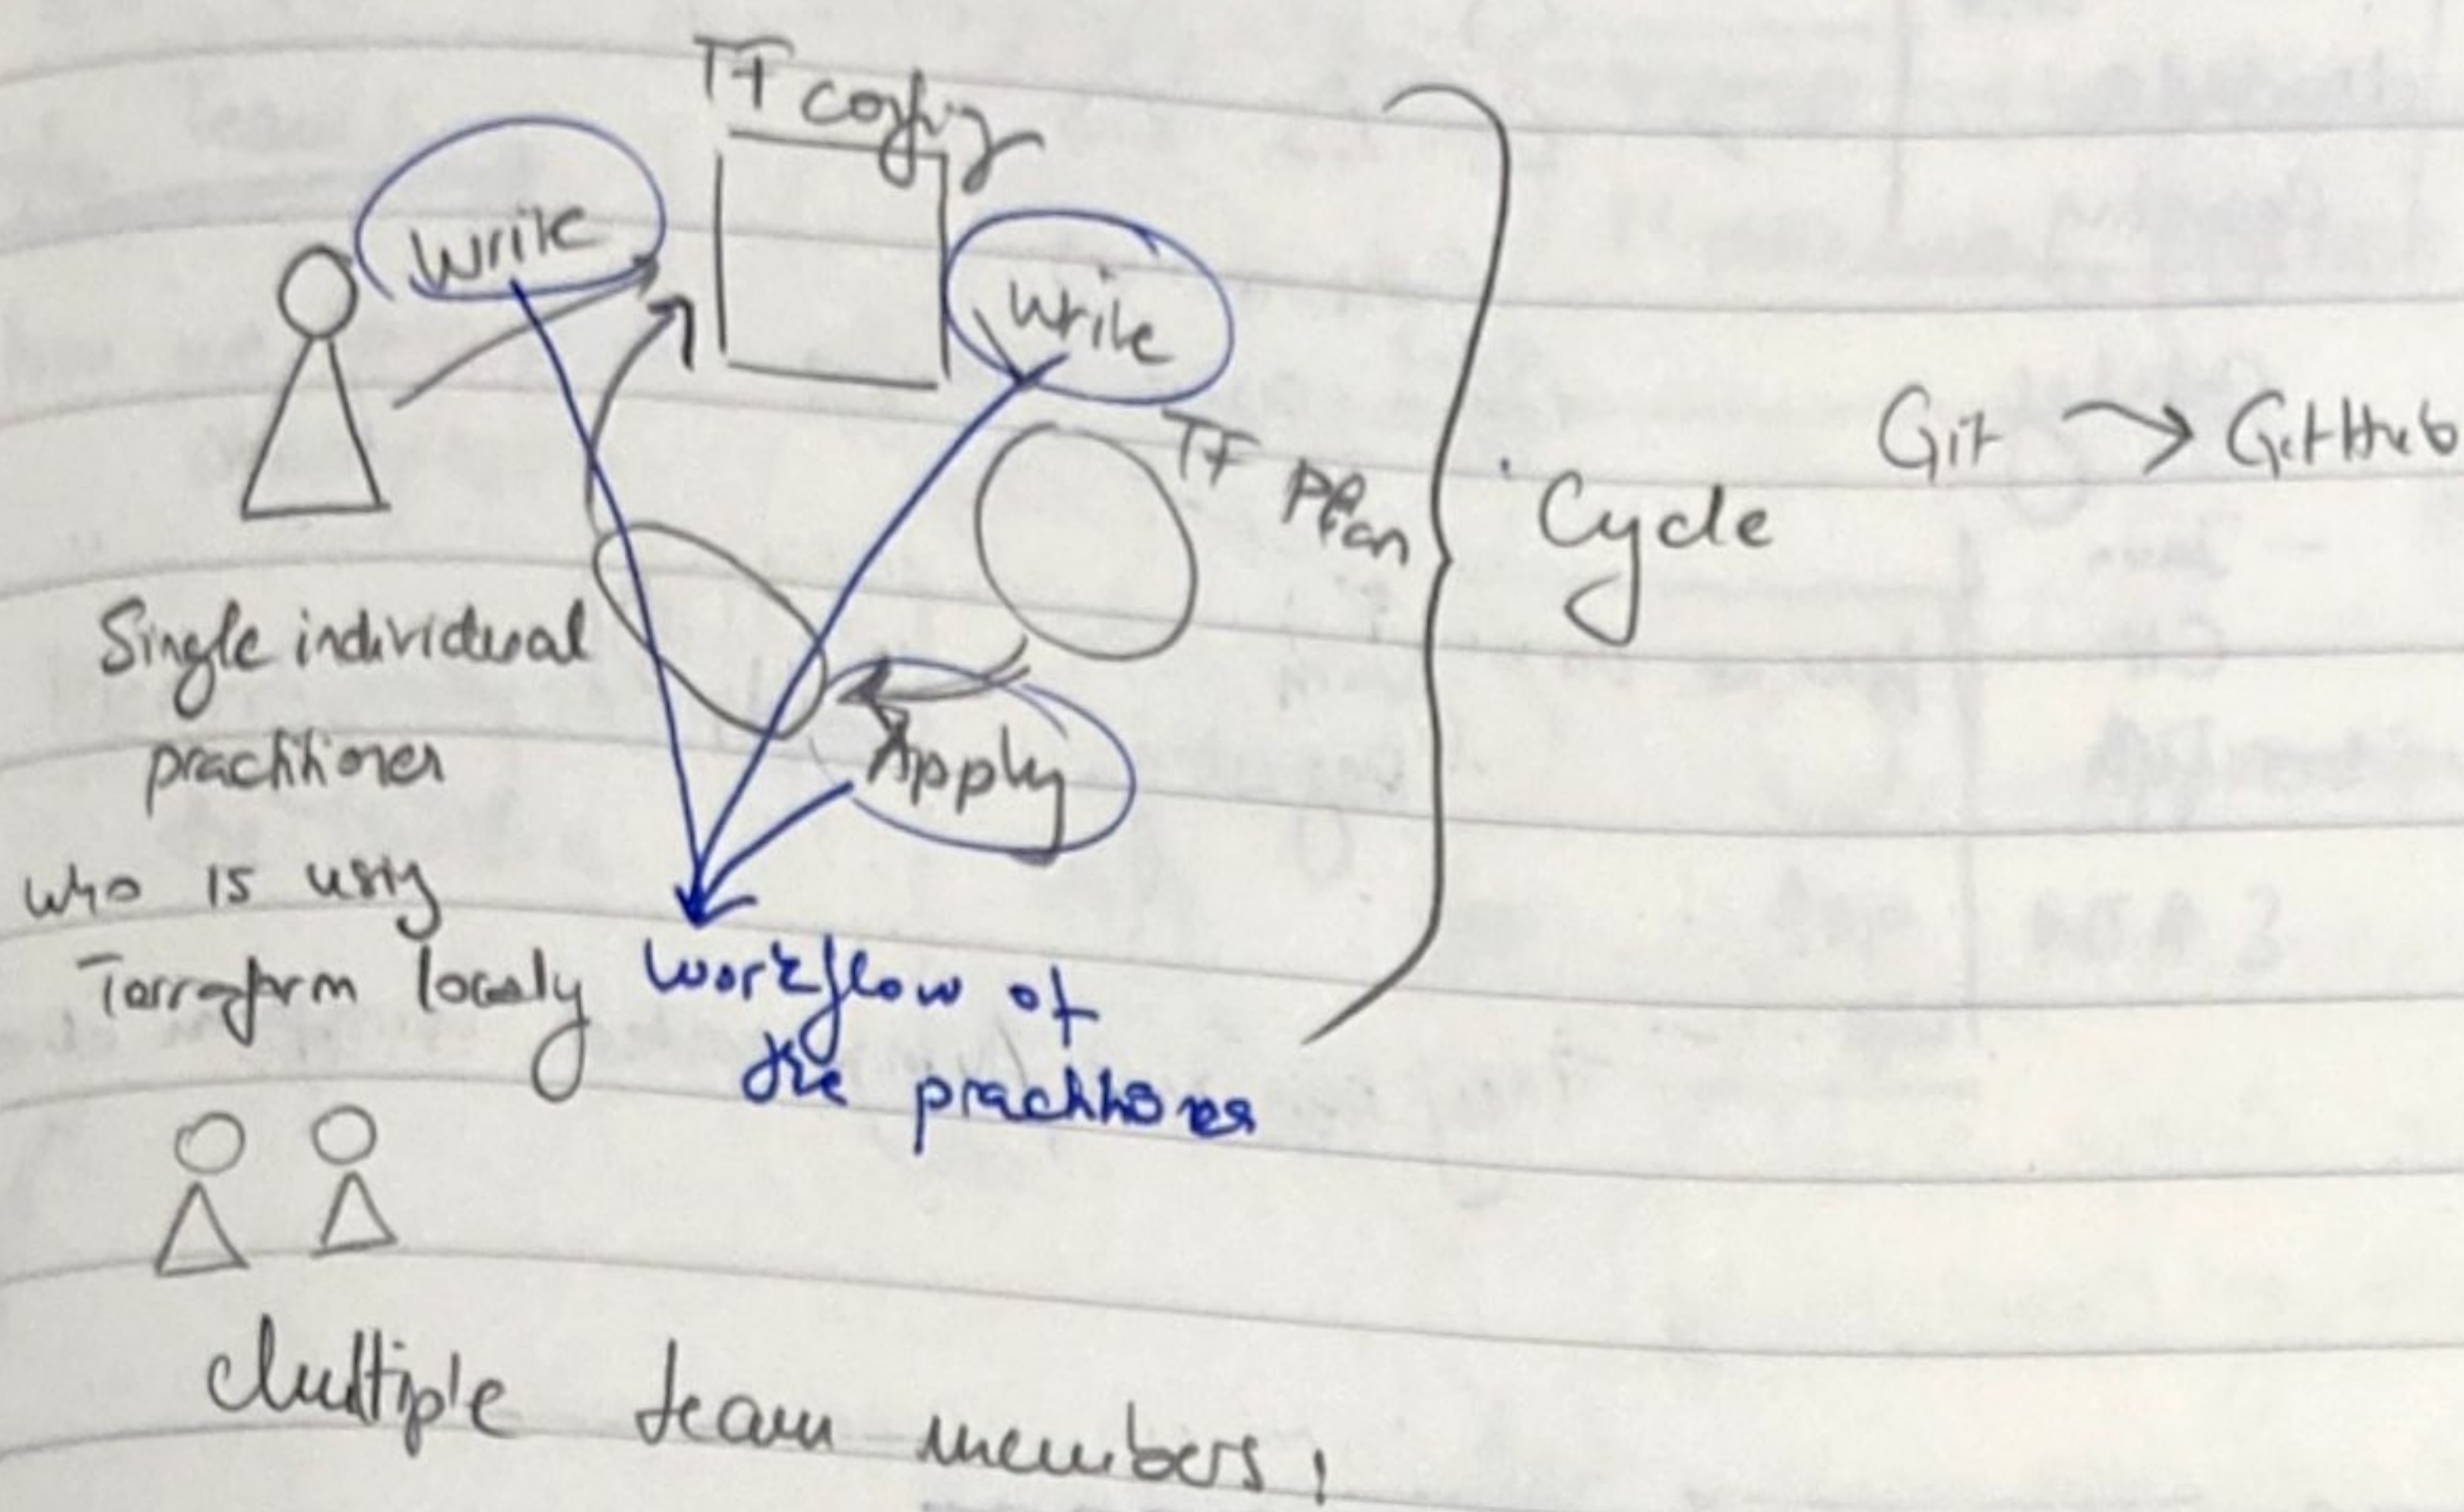 TF config
Write
Write
TF Plan
Cycle
Git → GitHub
Apply
Single individual
practitioner
who is using
Terraform localy
Workflow of
the practitioner
Multiple team members!